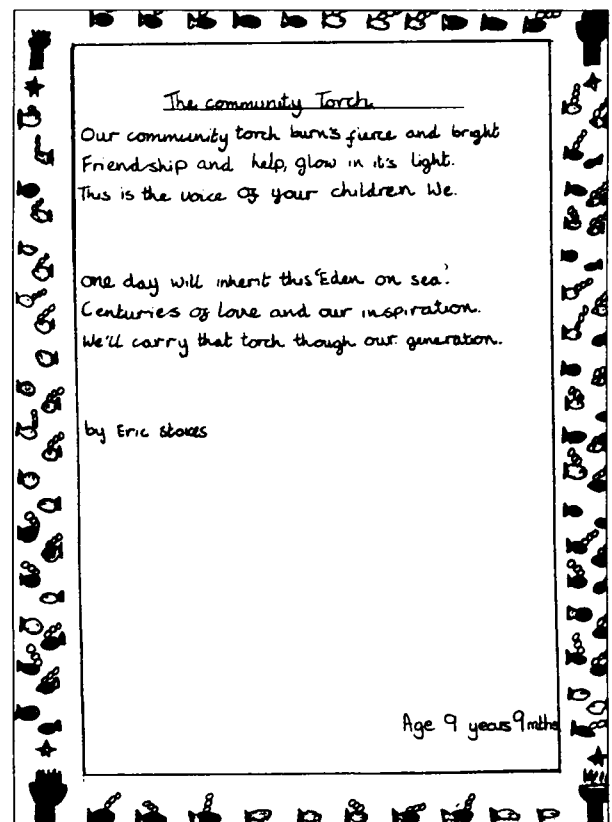 The community Torch
Our community torch burn's fierce and bright
Friendship and help, glow in it's light.
This is the voice of your children We.
one day will inherit this 'Eden on sea'.
Centuries of love and our inspiration.
We'll carry that torch though our generation.
by Eric Stokes
Age 9 years 9 mths